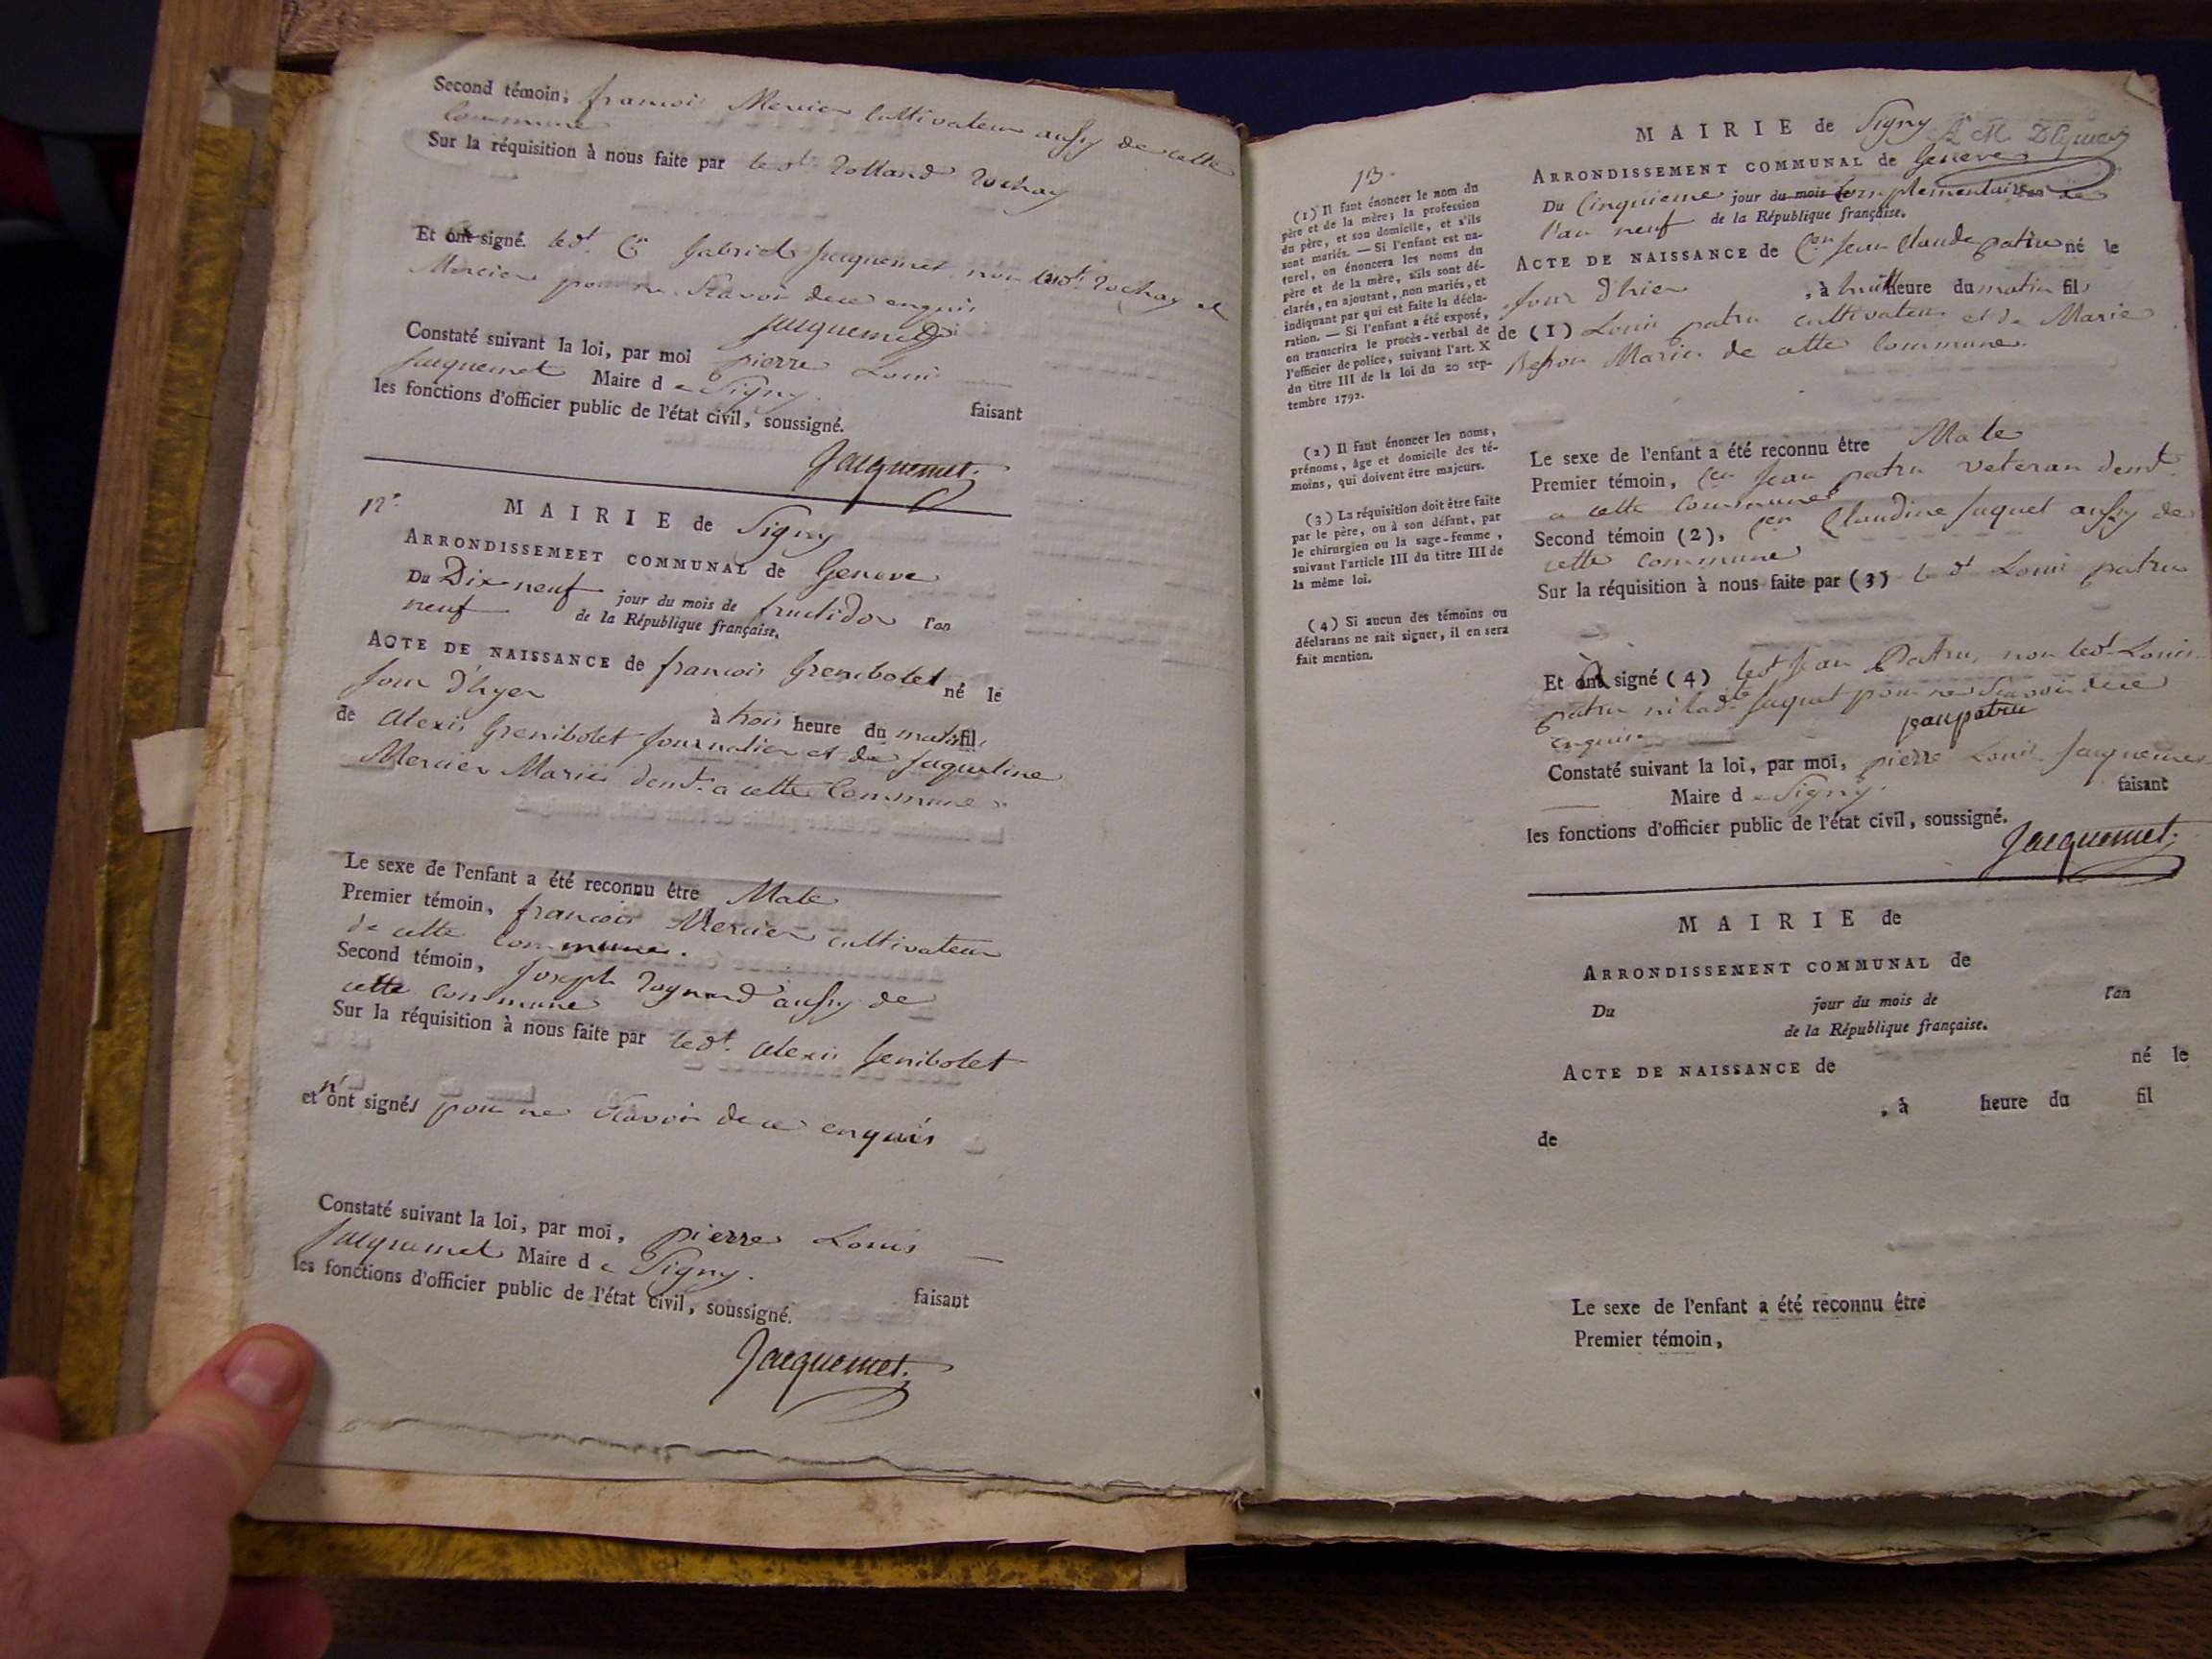 Second témoin, francois Mercier Cultivateur aussy de cette
Commune
Sur la réquisition à nous faite par led.t Rolland Rochay
Et ont signé. led.t C.en Gabriel Jacquemet non led.t Rochay et
Mercier pour ne Scavoir dece enquis
Jacquemet
Constaté suivant la loi, par moi pierre Louis
Jacquemet Maire de Signy. faisant
les fonctions d'officier public de l'état civil, soussigné.
Jacquemet.
12.
MAIRIE de Signy
ARRONDISSEMEET COMMUNAL de Geneve
Du Dix neuf jour du mois de fructidor l'an
neuf de la République française.
ACTE DE NAISSANCE de francois Grenibolet né le
Jour d'hyer à trois heure du matin fils
de Alexis Grenibolet Journalier et de Jaqueline
Mercier Mariés dem.t a cette Commune
Le sexe de l'enfant a été reconnu être Male
Premier témoin, francois Mercier cultivateur
de cette commune.
Second témoin, Joseph Rognard aussy de
cette commune
Sur la réquisition à nous faite par led.t Alexis Genibolet
et n'ont signés pour ne Scavoir de ce enquis
Constaté suivant la loi, par moi, pierre Louis
Jacquemet Maire de Signy.
faisant
les fonctions d'officier public de l'état civil, soussigné.
Jacquemet.
13.
(1) Il faut énoncer le nom du
père et de la mère; la profession
du père, et son domicile, et s'ils
sont mariés. — Si l'enfant est na-
turel, on énoncera les noms du
père et de la mère, s'ils sont dé-
clarés, en ajoutant, non mariés, et
indiquant par qui est faite la décla-
ration. — Si l'enfant a été exposé,
on transcrira le procès-verbal de
l'officier de police, suivant l'art. X
du titre III de la loi du 20 sep-
tembre 1792.
(2) Il faut énoncer les noms,
prénoms, âge et domicile des té-
moins, qui doivent être majeurs.
(3) La réquisition doit être faite
par le père, ou à son défaut, par
le chirurgien ou la sage-femme,
suivant l'article III du titre III de
la même loi.
(4) Si aucun des témoins ou
déclarans ne sait signer, il en sera
fait mention.
MAIRIE de Signy
ARRONDISSEMENT COMMUNAL de Geneve
Du Cinquieme jour du mois de Complementaire l'an de
l'an neuf de la République française.
ACTE DE NAISSANCE de C.en Jean Claude patru né le
Jour d'hier, à huit heure du matin fils
de (1) Louis patru cultivateur et de Marie
Besson Mariés de cette Commune.
Le sexe de l'enfant a été reconnu être Male
Premier témoin, C.en Jean patru veteran dem.t
a cette commune
Second témoin (2), C.en Claudine Juquet aussy de
cette commune
Sur la réquisition à nous faite par (3) led.t Louis patru
Et a signé (4) led.t Jean Patru, non led.t Louis
patru ni lad.te Juquet pour ne Scavoir dece
enquis
jean patru
Constaté suivant la loi, par moi, pierre Louis Jacquemet
Maire de Signy. faisant
les fonctions d'officier public de l'état civil, soussigné.
Jacquemet.
MAIRIE de
ARRONDISSEMENT COMMUNAL de
Du jour du mois de l'an
de la République française.
ACTE DE NAISSANCE de né le
, à heure du fil
de
Le sexe de l'enfant a été reconnu être
Premier témoin,